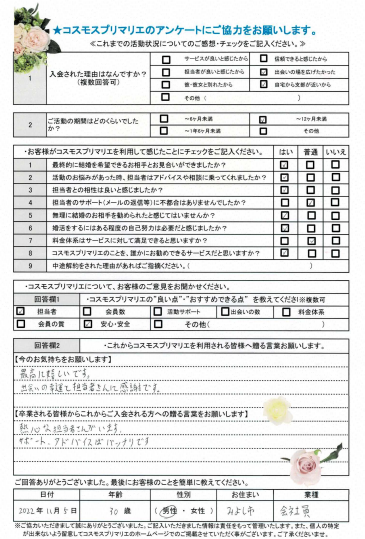 ★コスモスプリマリエのアンケートにご協力をお願いします。
≪これまでの活動状況についてのご感想・チェックをご記入ください。≫
1
入会された理由はなんですか？
（複数回答可）
サービスが良いと感じたから
信頼できると感じたから
担当者が良いと感じたから
出会いの場を広げたかった
彼・彼女と別れたから
自宅から支部が近いから
その他（ ）
2
ご活動の期間はどのくらいでしたか？
～6ヶ月未満
～12ヶ月未満
～1年6ヶ月未満
その他
・お客様がコスモスプリマリエを利用して感じたことにチェックをご記入ください。
はい 普通 いいえ
1 最終的に結婚を希望できるお相手とお見合いができましたか？
2 活動のお悩みがあった時、担当者はアドバイスや相談に乗ってくれましたか？
3 担当者との相性は良いと感じましたか？
4 担当者のサポート（メールの返信等）に不都合はありませんでしたか？
5 無理に結婚のお相手を勧められたと感じてはいませんか？
6 婚活をするにはある程度の自己努力は必要だと感じましたか？
7 料金体系はサービスに対して満足できると思いますか？
8 コスモスプリマリエのことを、誰かにお勧めできるサービスだと思いますか？
9 中途解約をされた理由があればご指摘ください。（ ）
・コスモスプリマリエについて、お客様のご意見をお聞かせください。
回答欄1
・コスモスプリマリエの“良い点”・“おすすめできる点” を教えてください※複数可
担当者
会員数
活動サポート
出会いの数
料金体系
会員の質
安心・安全
その他（ ）
回答欄2
・これからコスモスプリマリエを利用される皆様へ贈る言葉お願いします。
【今のお気持ちをお願いします】
最高に嬉しいです。
出会いの幸運と担当者さんに感謝です。
【卒業される皆様からこれからご入会される方への贈る言葉をお願いします】
熱心な担当者さんがいます。
サポート、アドバイスはバッチリです
ご回答ありがとうございました。最後にお客様のことを簡単に教えてください。
日付 年齢 性別 お住まい 業種
2022年11月5日 30歳 （男性 ・ 女性） みよし市 会社員
※ご協力いただきまして誠にありがとうございました。ご記入いただきました情報は責任をもって管理いたします。また、個人の特定
が出来ないよう留意してコスモスプリマリエのホームページでのご掲載させていただく事がございます。ご了承くださいませ。